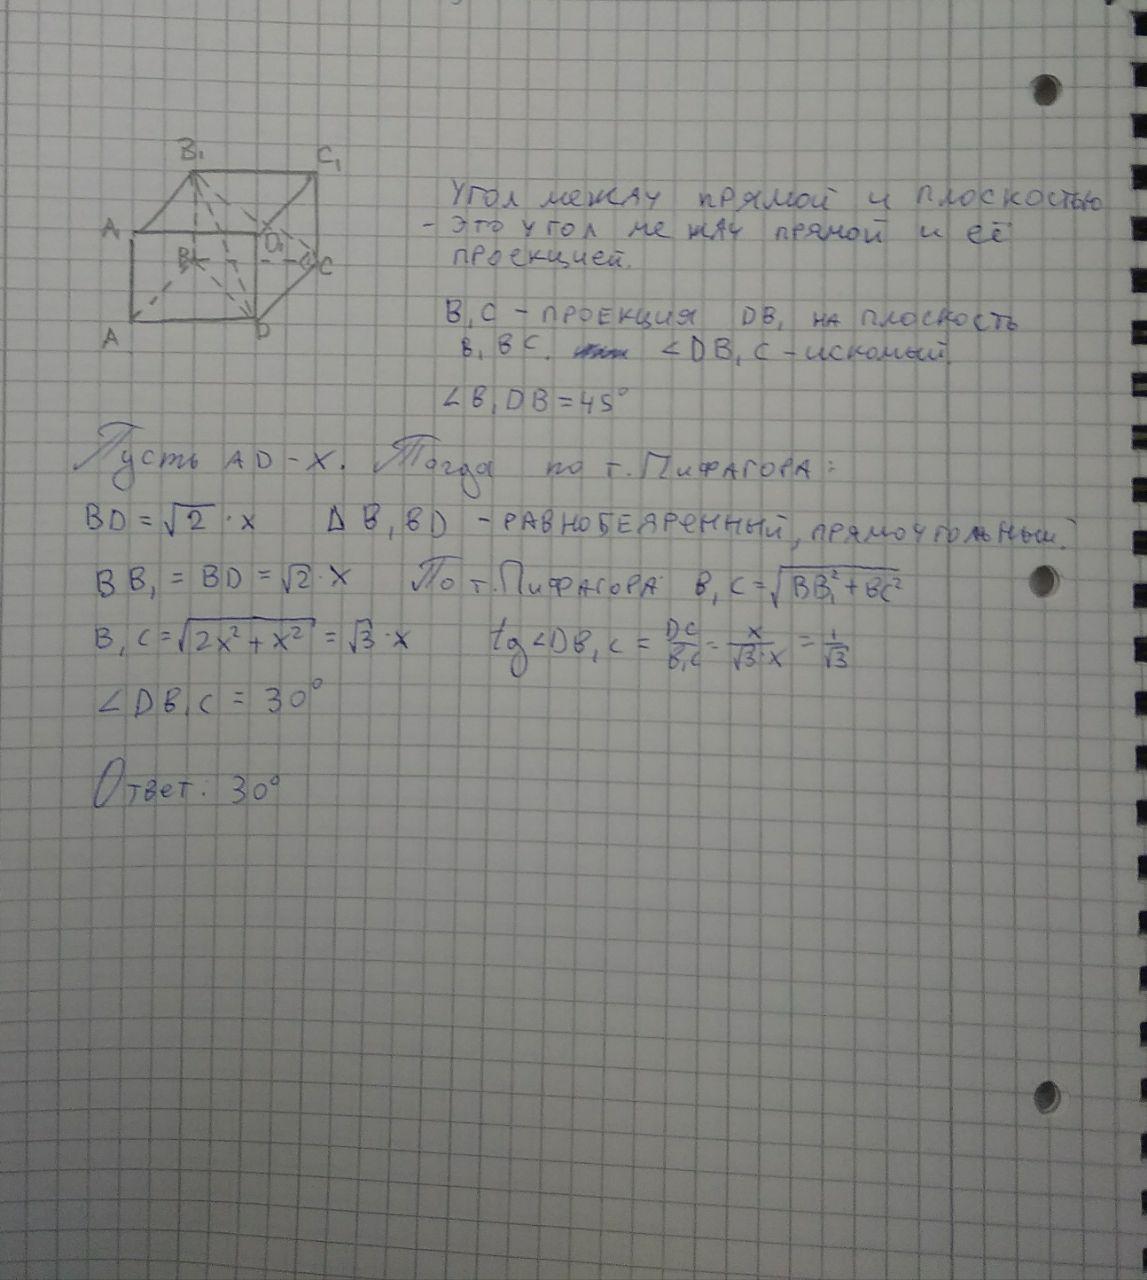 B₁ C₁
A D₁
B C
A D
Угол между прямой и плоскостью
- это угол между прямой и её
проекцией.
B₁C - проекция DB₁ на плоскость
B₁BC. ∠DB₁C - искомый
∠B₁DB = 45°
Пусть AD - x. Тогда по т. Пифагора:
BD = √2 · x Δ B₁BD - равнобедренный, прямоугольный.
BB₁ = BD = √2 · x По т. Пифагора B₁C = √BB₁² + BC²
B₁C = √2x² + x² = √3 · x tg ∠DB₁C = DC/B₁C = x/√3·x = 1/√3
∠DB₁C = 30°
Ответ: 30°